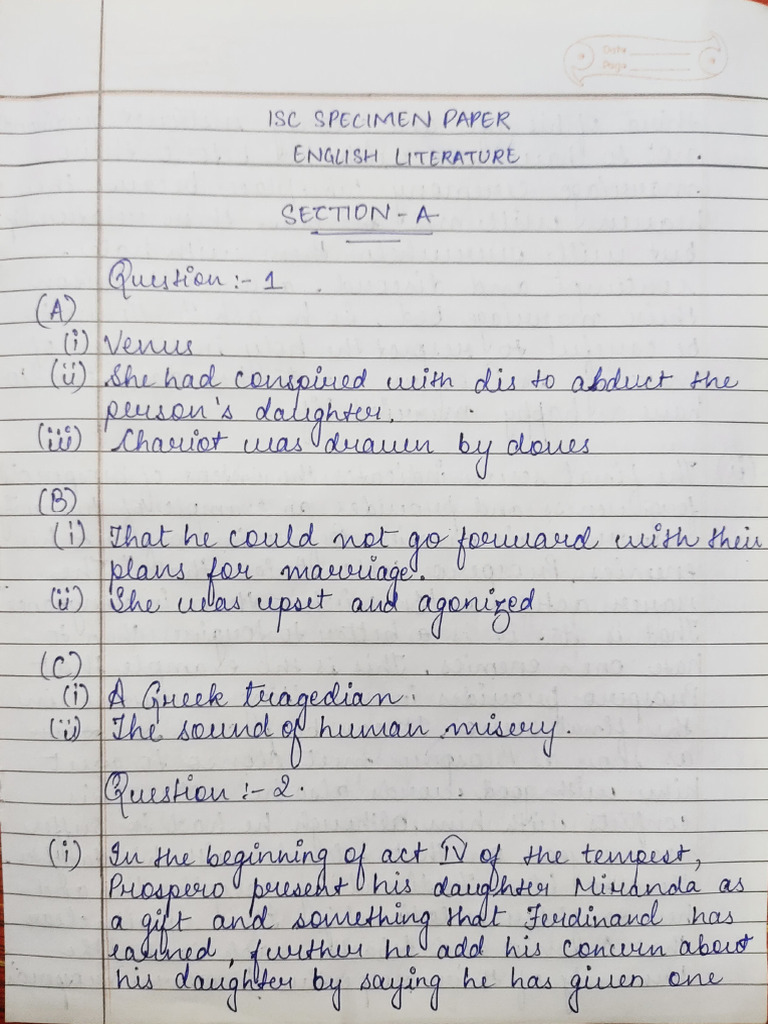 Date
Page
ISC SPECIMEN PAPER
ENGLISH LITERATURE
SECTION - A
Question :- 1
(A)
(i) Venus
(ii) She had conspired with dis to abduct the
person's daughter.
(iii) Chariot was drawn by doves
(B)
(i) That he could not go forward with their
plans for marriage.
(ii) She was upset and agonized
(C)
(i) A Greek tragedian.
(ii) The sound of human misery.
Question :- 2.
(i) In the beginning of act IV of the tempest,
Prospero present his daughter Miranda as
a gift and something that Ferdinand has
earned, further he add his concern about
his daughter by saying he has given one